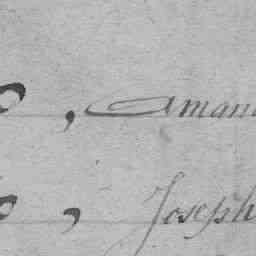 , Aman
, Joseph